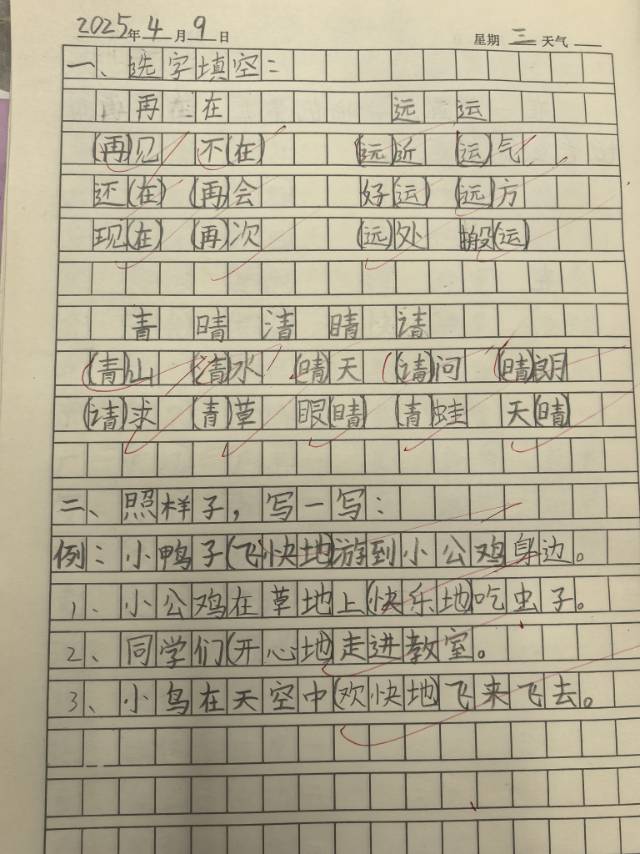 2025年4月9日 星期三 天气
一、选字填空：
再 在 远 运
(再)见 不(在) (远)近 (运)气
还(在) (再)会 好(运) (远)方
现(在) (再)次 (远)处 搬(运)
青 晴 清 睛 请
(青)山 (清)水 (晴)天 (请)问 (晴)朗
(请)求 (青)草 眼(睛) (青)蛙 天(晴)
二、照样子，写一写：
例：小鸭子(飞快地)游到小公鸡身边。
1、小公鸡在草地上(快乐地)吃虫子。
2、同学们(开心地)走进教室。
3、小鸟在天空中(欢快地)飞来飞去。